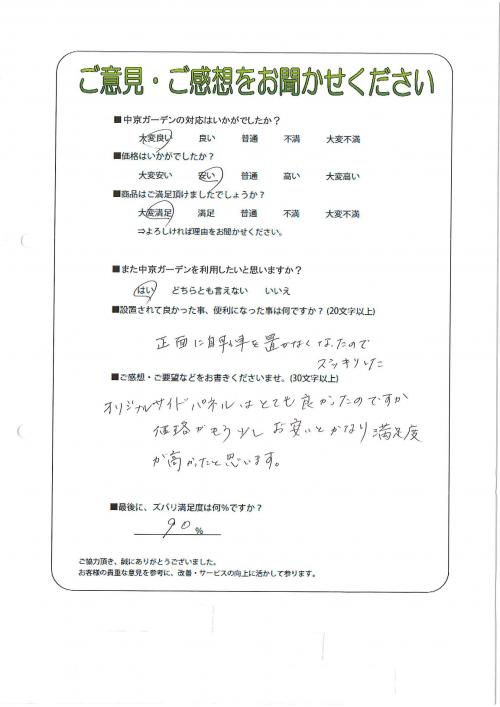 ご意見・ご感想をお聞かせください
■中京ガーデンの対応はいかがでしたか？
大変良い 良い 普通 不満 大変不満
■価格はいかがでしたか？
大変安い 安い 普通 高い 大変高い
■商品はご満足頂けましたでしょうか？
大変満足 満足 普通 不満 大変不満
⇒よろしければ理由をお聞かせください。
■また中京ガーデンを利用したいと思いますか？
はい どちらとも言えない いいえ
■設置されて良かった事、便利になった事は何ですか？(20文字以上)
正面に自転車を置かなくなったので
スッキリした
■ご感想・ご要望などをお書きくださいませ。(30文字以上)
オリジナルサイドパネルはとても良かったのですが
価格がもう少しお安いとかなり満足度
が高かったと思います。
■最後に、ズバリ満足度は何％ですか？
90 %
ご協力頂き、誠にありがとうございました。
お客様の貴重な意見を参考に、改善・サービスの向上に活かして参ります。